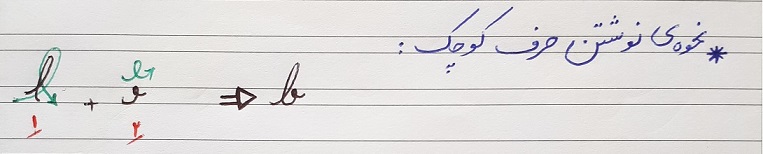 * نحوه‌ی نوشتن حرف کوچک :
l + ⇒ b
۱ ۲